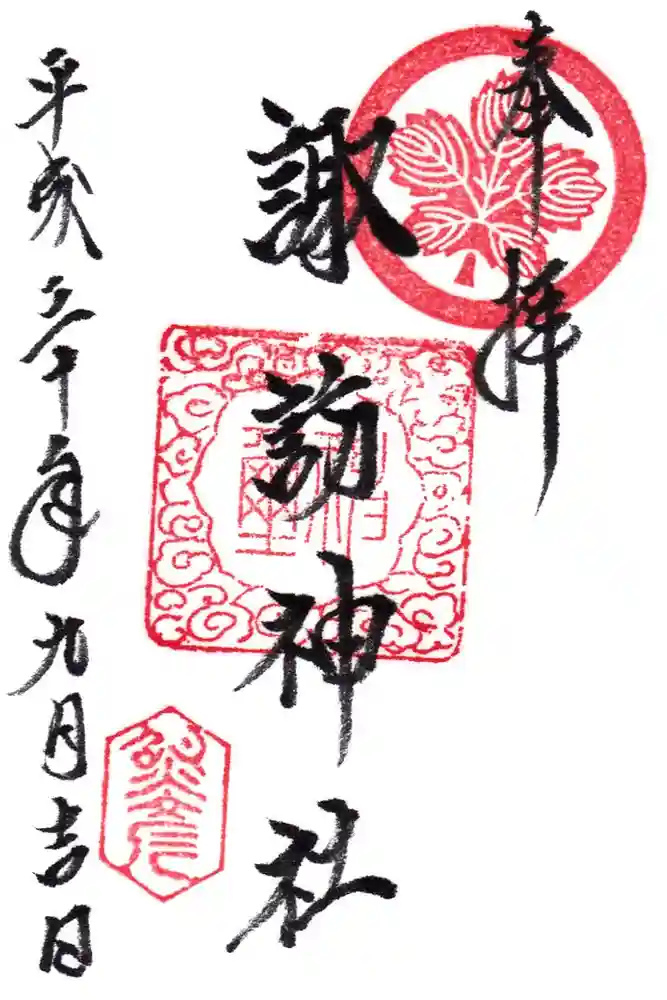 奉拝
諏訪神社
平成三十年九月吉日